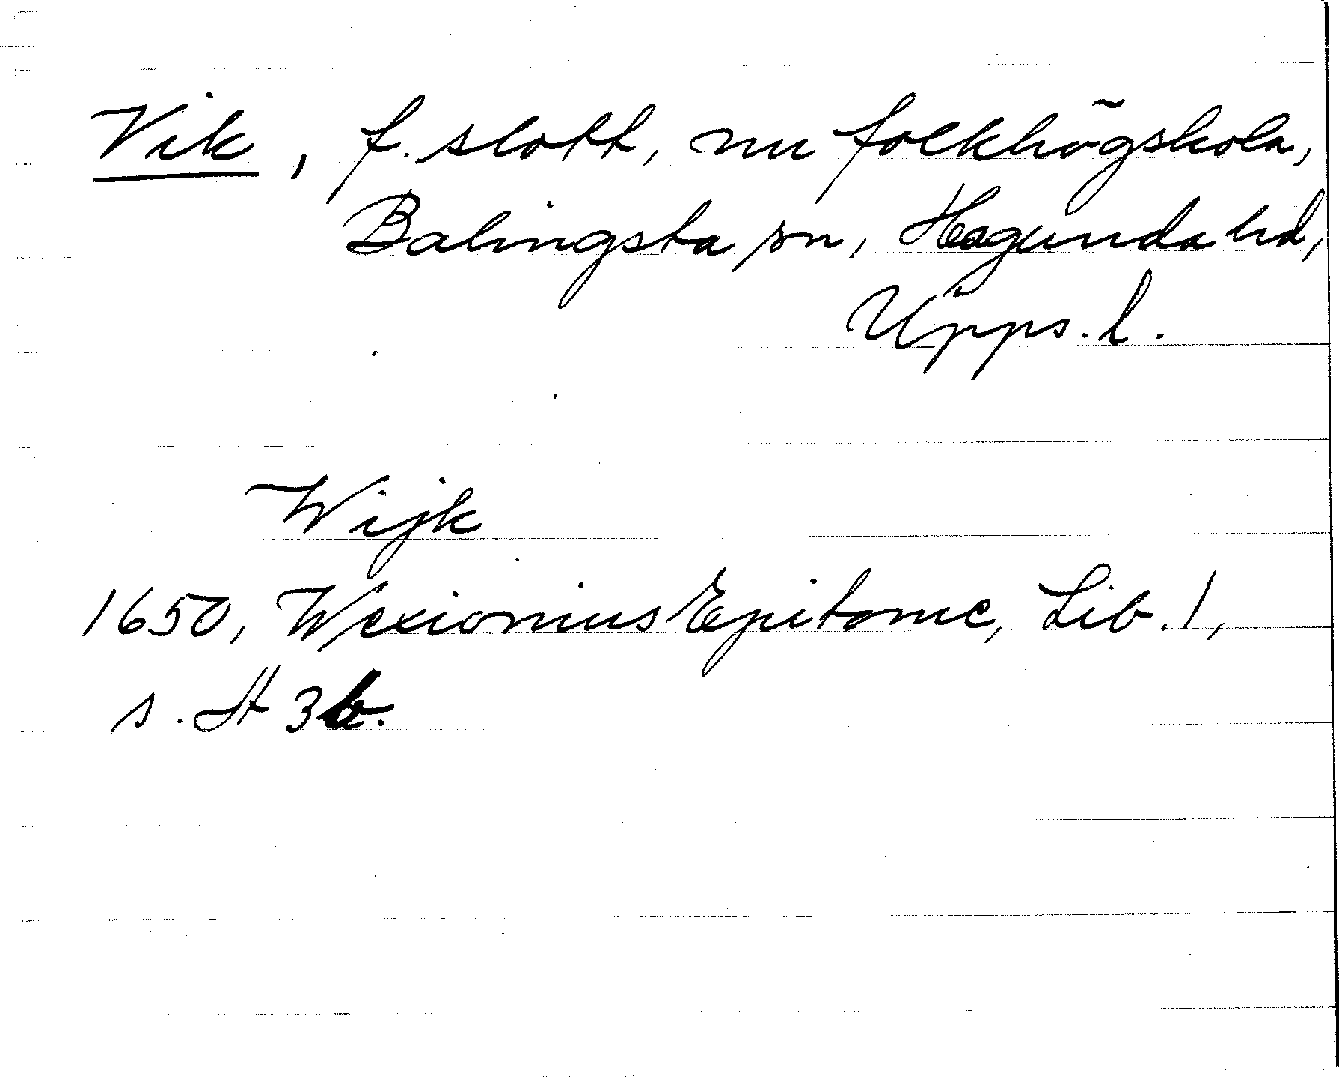 Vik, f. slott, nu folkhögskola,
Balingsta sn, Hagunda hd,
Upps. l.
Wijk
1650, Wexionius Epitome, Lib. 1,
s. A 3 b.